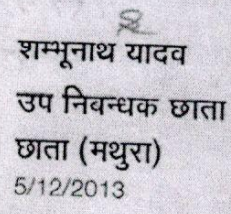 शम्भूनाथ यादव
उप निबन्धक छाता
छाता (मथुरा)
5/12/2013